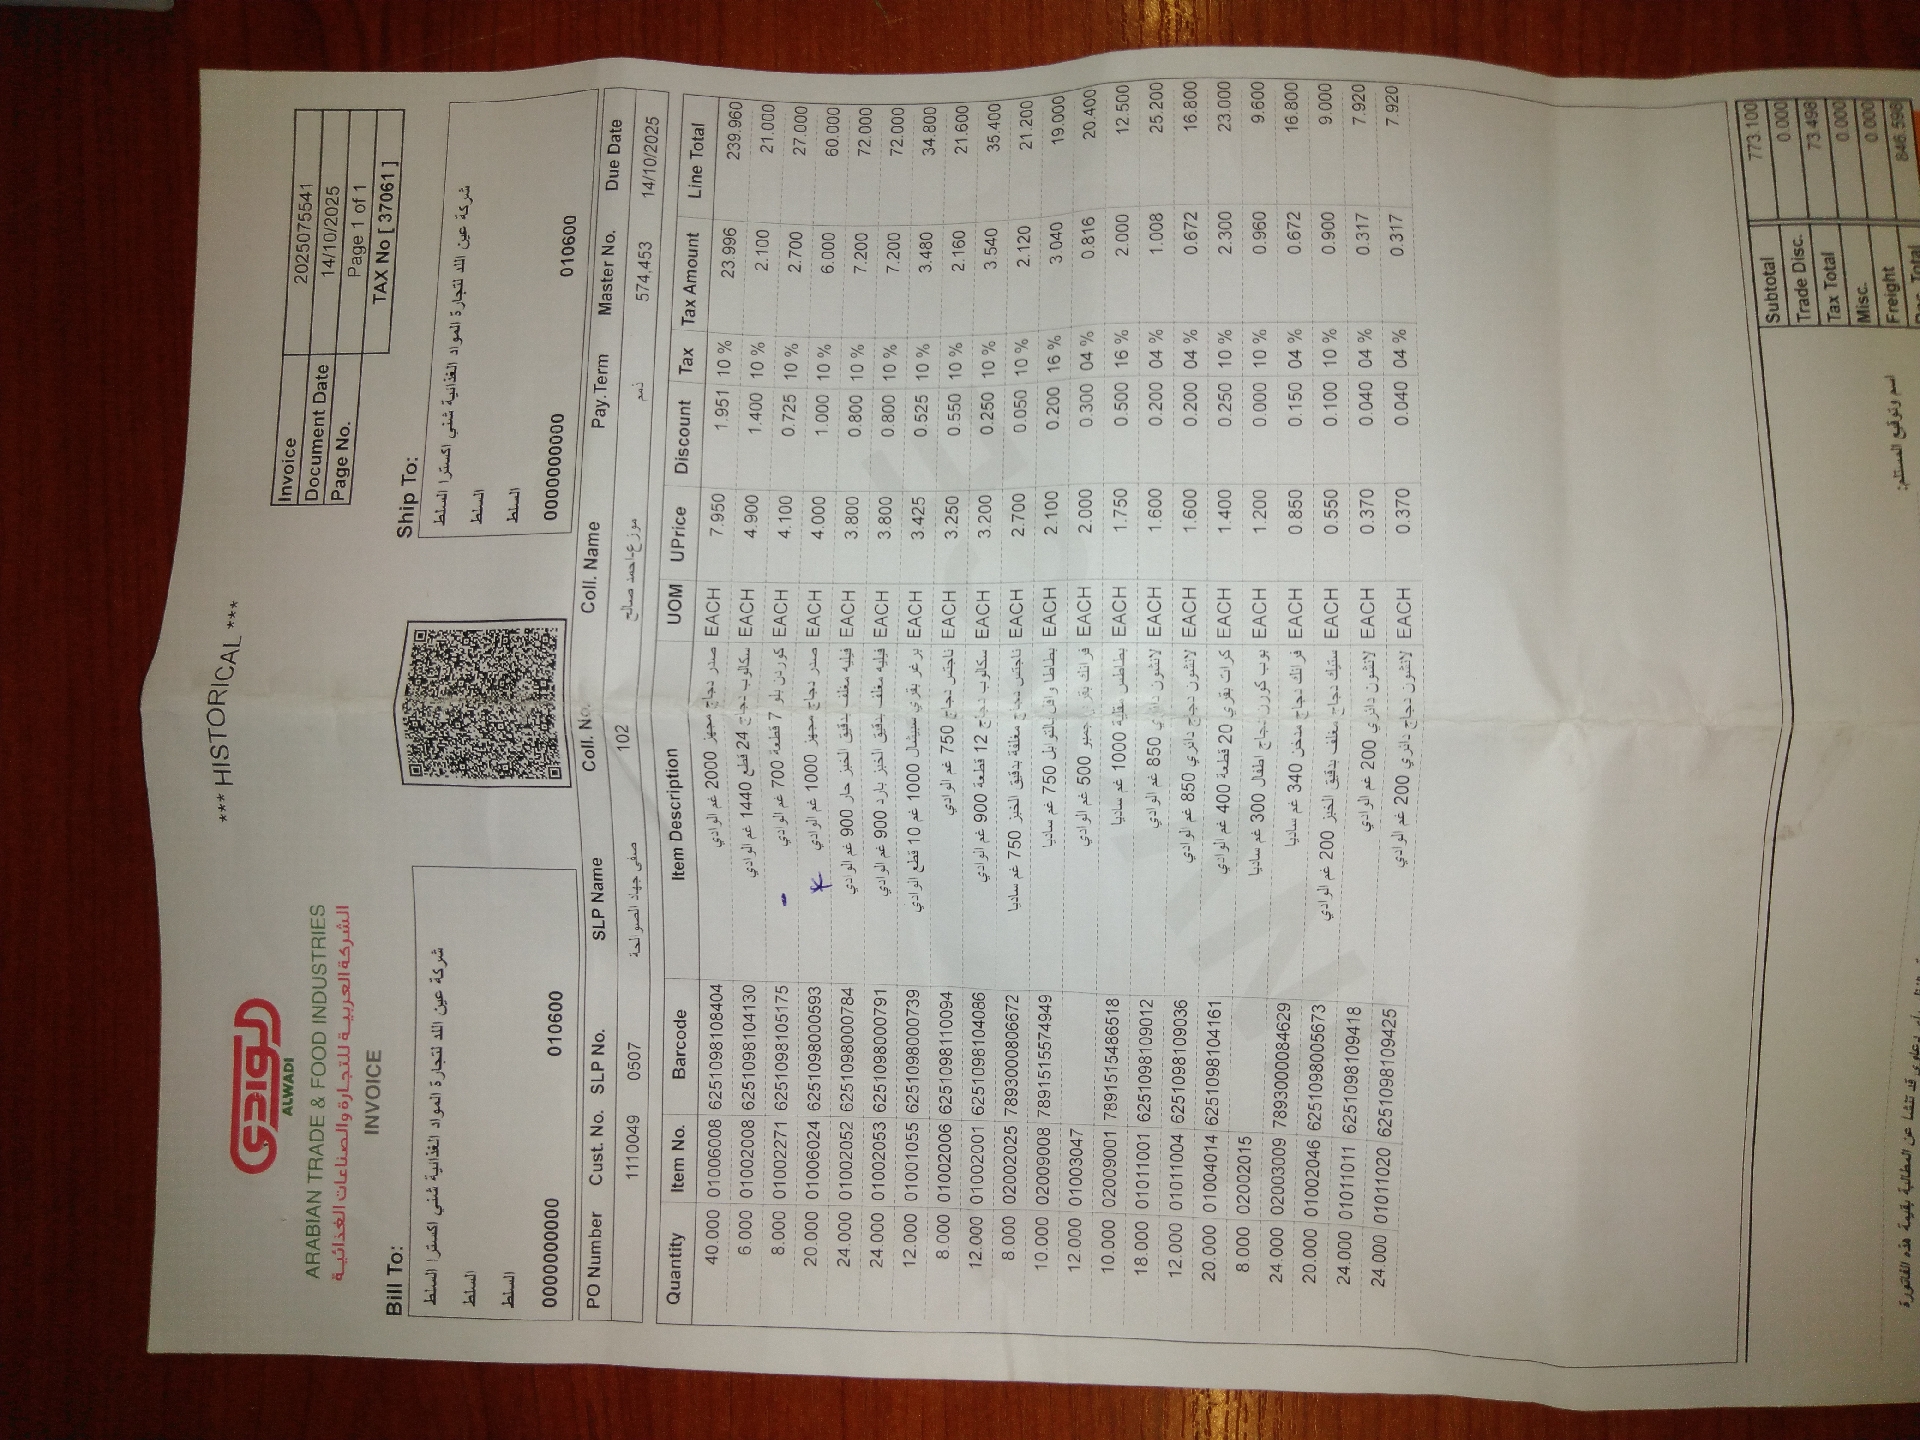 *** HISTORICAL ***
الوادي
ALWADI
ARABIAN TRADE & FOOD INDUSTRIES
الشركة العربية للتجارة والصناعات الغذائية
INVOICE
Invoice 2025075541
Document Date 14/10/2025
Page No. Page 1 of 1
TAX No [ 37061 ]
Bill To:
شركة عين الله لتجارة المواد الغذائية شني اكسترا السلط
السلط
السلط
0000000000 010600
Ship To:
شركة عين الله لتجارة المواد الغذائية شني اكسترا السلط
السلط
السلط
0000000000 010600
PO Number Cust. No. SLP No. SLP Name Coll. No. Coll. Name Pay.Term Master No. Due Date
1110049 0507 صفي جهاد الصوالحة 102 موزع-احمد صالح ذمم 574,453 14/10/2025
Quantity Item No. Barcode Item Description UOM UPrice Discount Tax Tax Amount Line Total
40.000 01006008 6251098108404 صدر دجاج مجهز 2000 غم الوادي EACH 7.950 1.951 10 % 23.996 239.960
6.000 01002008 6251098104130 سكالوب دجاج 24 قطع 1440 غم الوادي EACH 4.900 1.400 10 % 2.100 21.000
8.000 01002271 6251098105175 كوردن بلو 7 قطعة 700 غم الوادي EACH 4.100 0.725 10 % 2.700 27.000
20.000 01006024 6251098000593 صدر دجاج مجهز 1000 غم الوادي EACH 4.000 1.000 10 % 6.000 60.000
24.000 01002052 6251098000784 فيليه مغلف بدقيق الخبز حار 900 غم الوادي EACH 3.800 0.800 10 % 7.200 72.000
24.000 01002053 6251098000791 فيليه مغلف بدقيق الخبز بارد 900 غم الوادي EACH 3.800 0.800 10 % 7.200 72.000
12.000 01001055 6251098000739 برغر بقري سبيشال 1000 غم 10 قطع الوادي EACH 3.425 0.525 10 % 3.480 34.800
8.000 01002006 6251098110094 ناجتس دجاج 750 غم الوادي EACH 3.250 0.550 10 % 2.160 21.600
12.000 01002001 6251098104086 سكالوب دجاج 12 قطعة 900 غم الوادي EACH 3.200 0.250 10 % 3.540 35.400
8.000 02002025 7893000806672 ناجتس دجاج مغلفة بدقيق الخبز 750 غم ساديا EACH 2.700 0.050 10 % 2.120 21.200
10.000 02009008 7891515574949 بطاطا وافل بالتوابل 750 غم ساديا EACH 2.100 0.200 16 % 3.040 19.000
12.000 01003047 فرانك بقري جمبو 500 غم الوادي EACH 2.000 0.300 04 % 0.816 20.400
10.000 02009001 7891515486518 بطاطس مقلية 1000 غم ساديا EACH 1.750 0.500 16 % 2.000 12.500
18.000 01011001 6251098109012 لانشون دائري 850 غم الوادي EACH 1.600 0.200 04 % 1.008 25.200
12.000 01011004 6251098109036 لانشون دجاج دائري 850 غم الوادي EACH 1.600 0.200 04 % 0.672 16.800
20.000 01004014 6251098104161 كرات بقري 20 قطعة 400 غم الوادي EACH 1.400 0.250 10 % 2.300 23.000
8.000 02002015 بوب كورن دجاج اطفال 300 غم ساديا EACH 1.200 0.000 10 % 0.960 9.600
24.000 02003009 7893000084629 فرانك دجاج مدخن 340 غم ساديا EACH 0.850 0.150 04 % 0.672 16.800
20.000 01002046 6251098005673 ستيك دجاج مغلف بدقيق الخبز 200 غم الوادي EACH 0.550 0.100 10 % 0.900 9.000
24.000 01011011 6251098109418 لانشون دائري 200 غم الوادي EACH 0.370 0.040 04 % 0.317 7.920
24.000 01011020 6251098109425 لانشون دجاج دائري 200 غم الوادي EACH 0.370 0.040 04 % 0.317 7.920
Subtotal 773.100
Trade Disc. 0.000
Tax Total 73.498
Misc. 0.000
Freight 0.000
Total 846.598
اسم وتوقيع المستلم:
قد تنشأ عن المطالبة بقيمة هذه الفاتورة